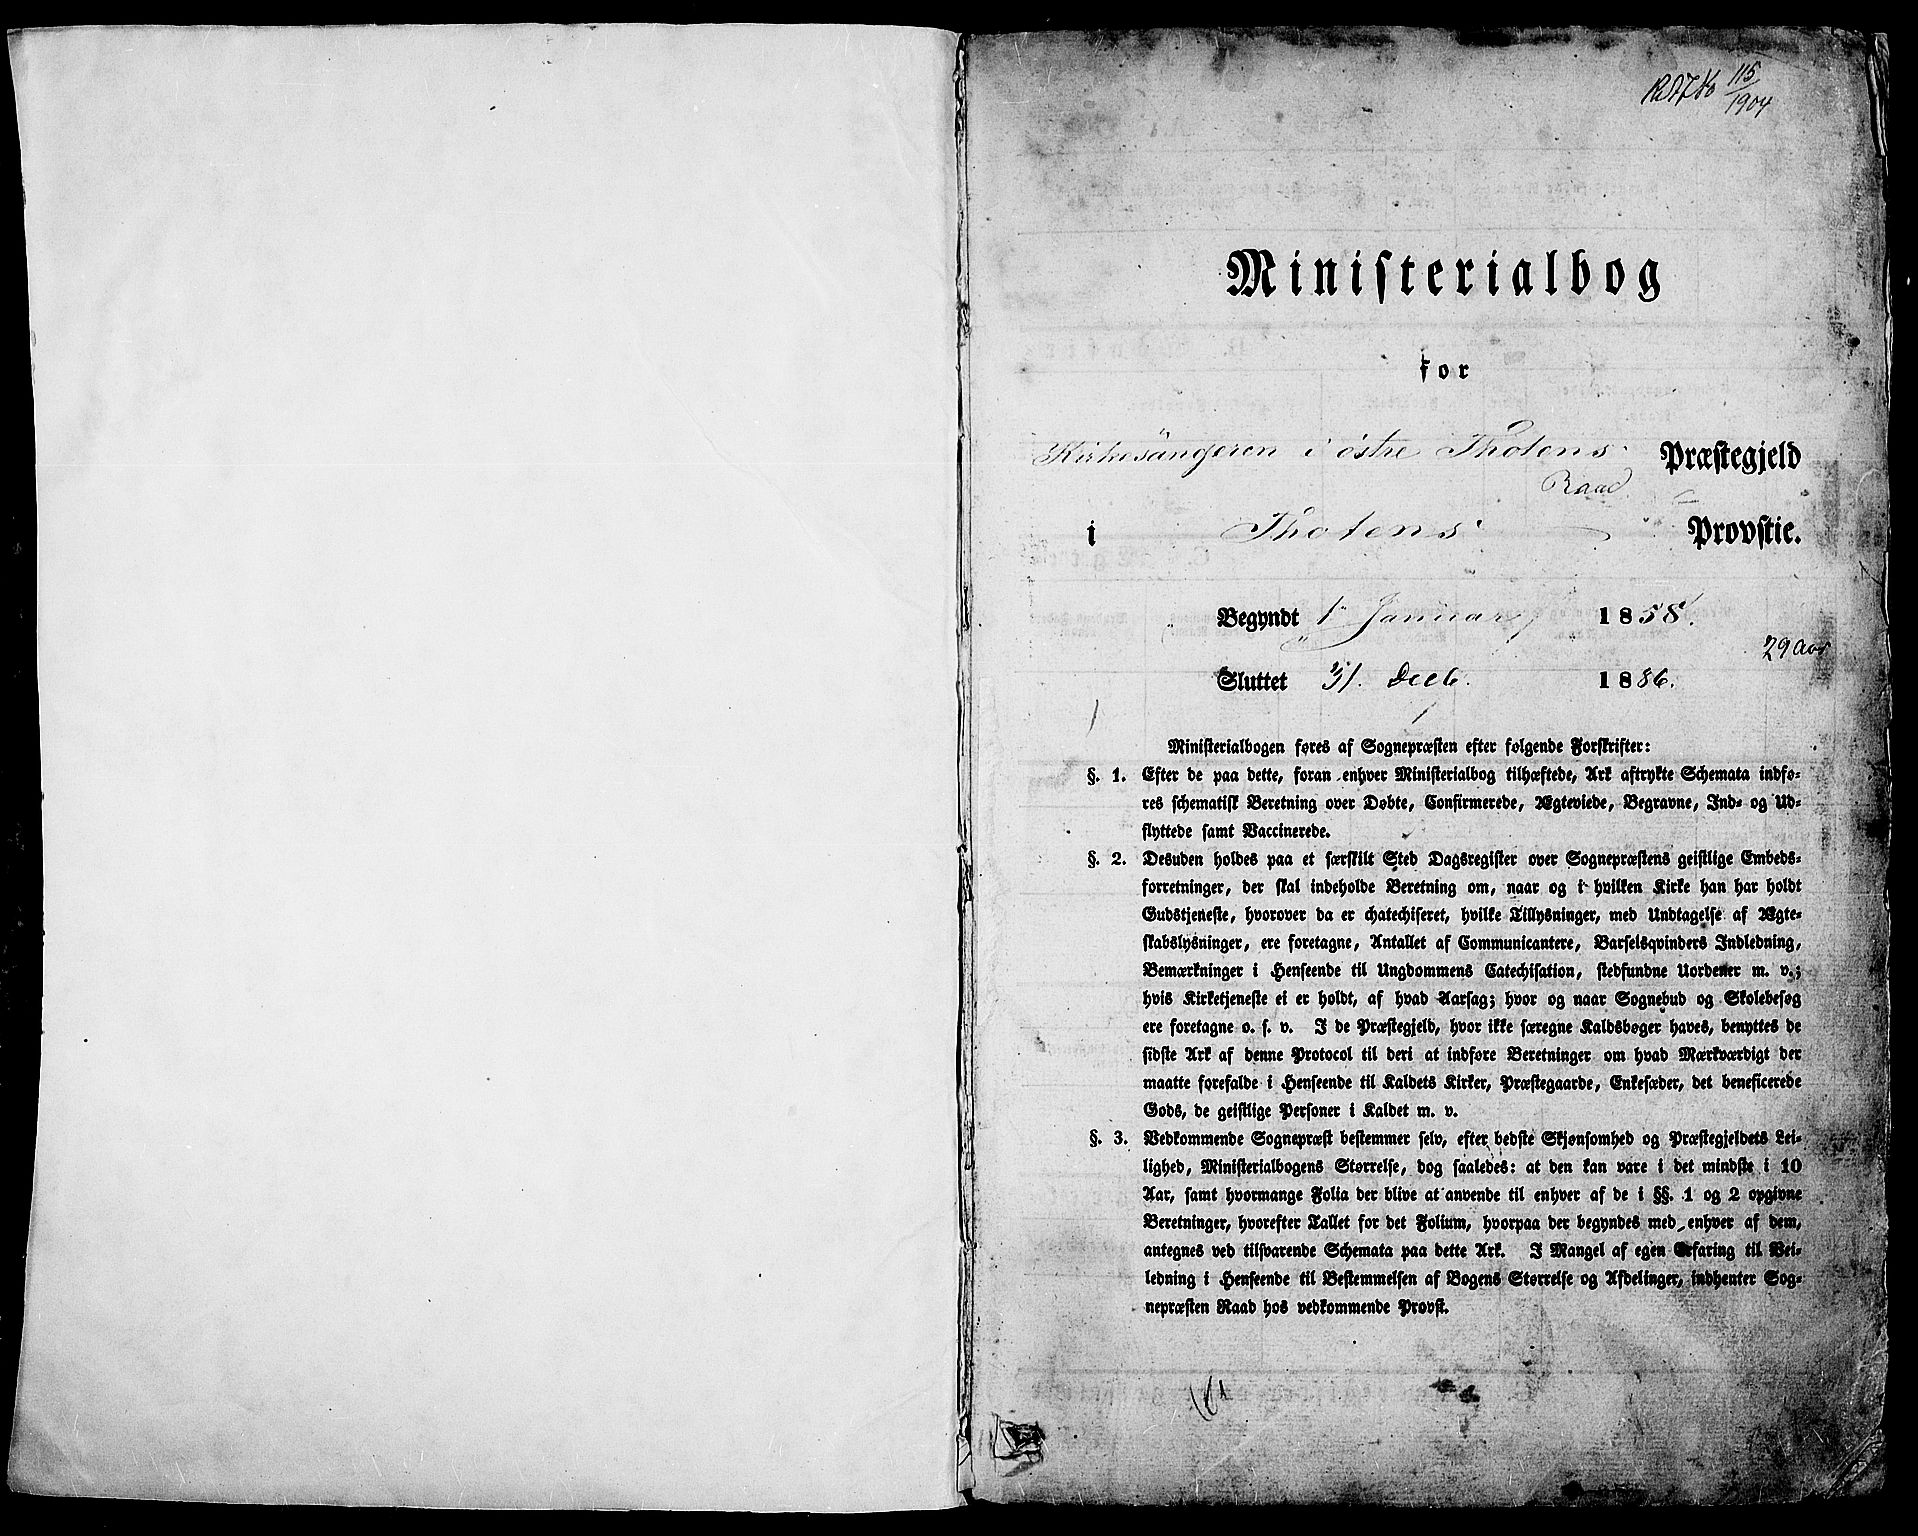 115
1904
Ministerialbog
for
Kirkesängeren i östre Thotens Præstegjeld
Raad
i Thotens Provstie.
Begyndt 1 Januar 1858.
29 Aar
Sluttet 31. Decb. 1886.
Ministerialbogen føres af Sognepræsten efter følgende Forskrifter:
§. 1. Efter de paa dette, foran enhver Ministerialbog tilhæftede, Ark aftrykte Schemata indfø-
res schematisk Beretning over Døbte, Confirmerede, Ægteviede, Begravne, Ind- og Ud-
flyttede samt Vaccinerede.
§. 2. Desuden holdes paa et særskilt Sted Dagsregister over Sognepræstens geistlige Embeds-
forretninger, der skal indeholde Beretning om, naar og i hvilken Kirke han har holdt
Gudstjeneste, hvorover da er chatechiseret, hvilke Tillysninger, med Undtagelse af Ægte-
skabslysninger, ere foretagne, Antallet af Communicantere, Barselsqvinders Indledning,
Bemærkninger i Henseende til Ungdommens Catechisation, stedfundne Uordener m. v.;
hvis Kirketjeneste ei er holdt, af hvad Aarsag; hvor og naar Sognebud og Skolebesøg
ere foretagne o. s. v. I de Præstegjeld, hvor ikke særegne Kaldsbøger haves, benyttes de
sidste Ark af denne Protocol til deri at indføre Beretninger om hvad Mærkværdigt der
maatte forefalde i Henseende til Kaldets Kirker, Præstegaarde, Enkesæder, det beneficerede
Gods, de geistlige Personer i Kaldet m. v.
§. 3. Vedkommende Sognepræst bestemmer selv, efter bedste Skjønsomhed og Præstegjeldets Lei-
lighed, Ministerialbogens Størrelse, dog saaledes: at den kan vare i det mindste i 10
Aar, samt hvormange Folia der blive at anvende til enhver af de i §§. 1 og 2 opgivne
Beretninger, hvorefter Tallet for det Folium, hvorpaa der begyndes med enhver af dem,
antegnes ved tilsvarende Schemata paa dette Ark. I Mangel af egen Erfaring til Vei-
ledning i Henseende til Bestemmelsen af Bogens Størrelse og Afdelinger, indhenter Sog-
nepræsten Raad hos vedkommende Provst.